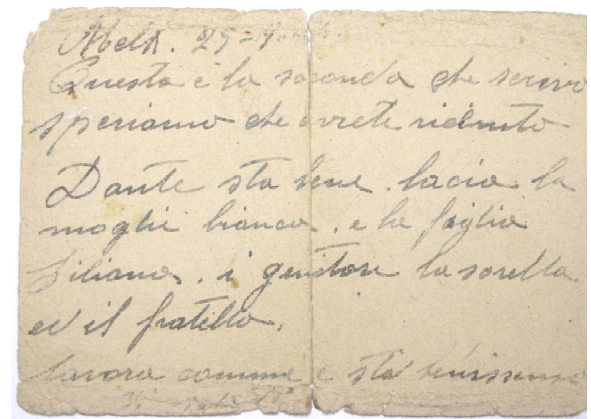 Melk. 25-9
Questa è la seconda che scrivo
speriamo che avrete ricevuto
Dante sta bene. bacia la
moglie bianca. e la figlia
Liliana. i genitore la sorella
ed il fratello.
lavora comme e sta benissimo